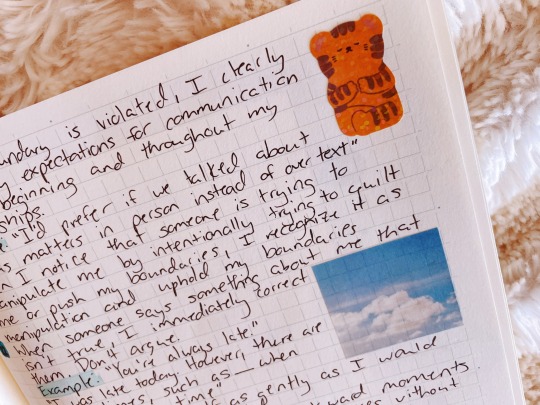 undary is violated, I clearly
y expectations for communication
beginning and throughout my
ships.
"I'd prefer if we talked about
s matters in person instead of over text"
n I notice that someone is trying to
anipulate me by intentionally trying to guilt
me or push my boundaries, I recognize it as
manipulation and uphold my boundaries
When someone says something about me that
isn't true, I immediately correct
them, don't argue.
Example: "You're always late."
I was late today. However, there are
times, such as — when
time"
as gently as I would
moments.
without